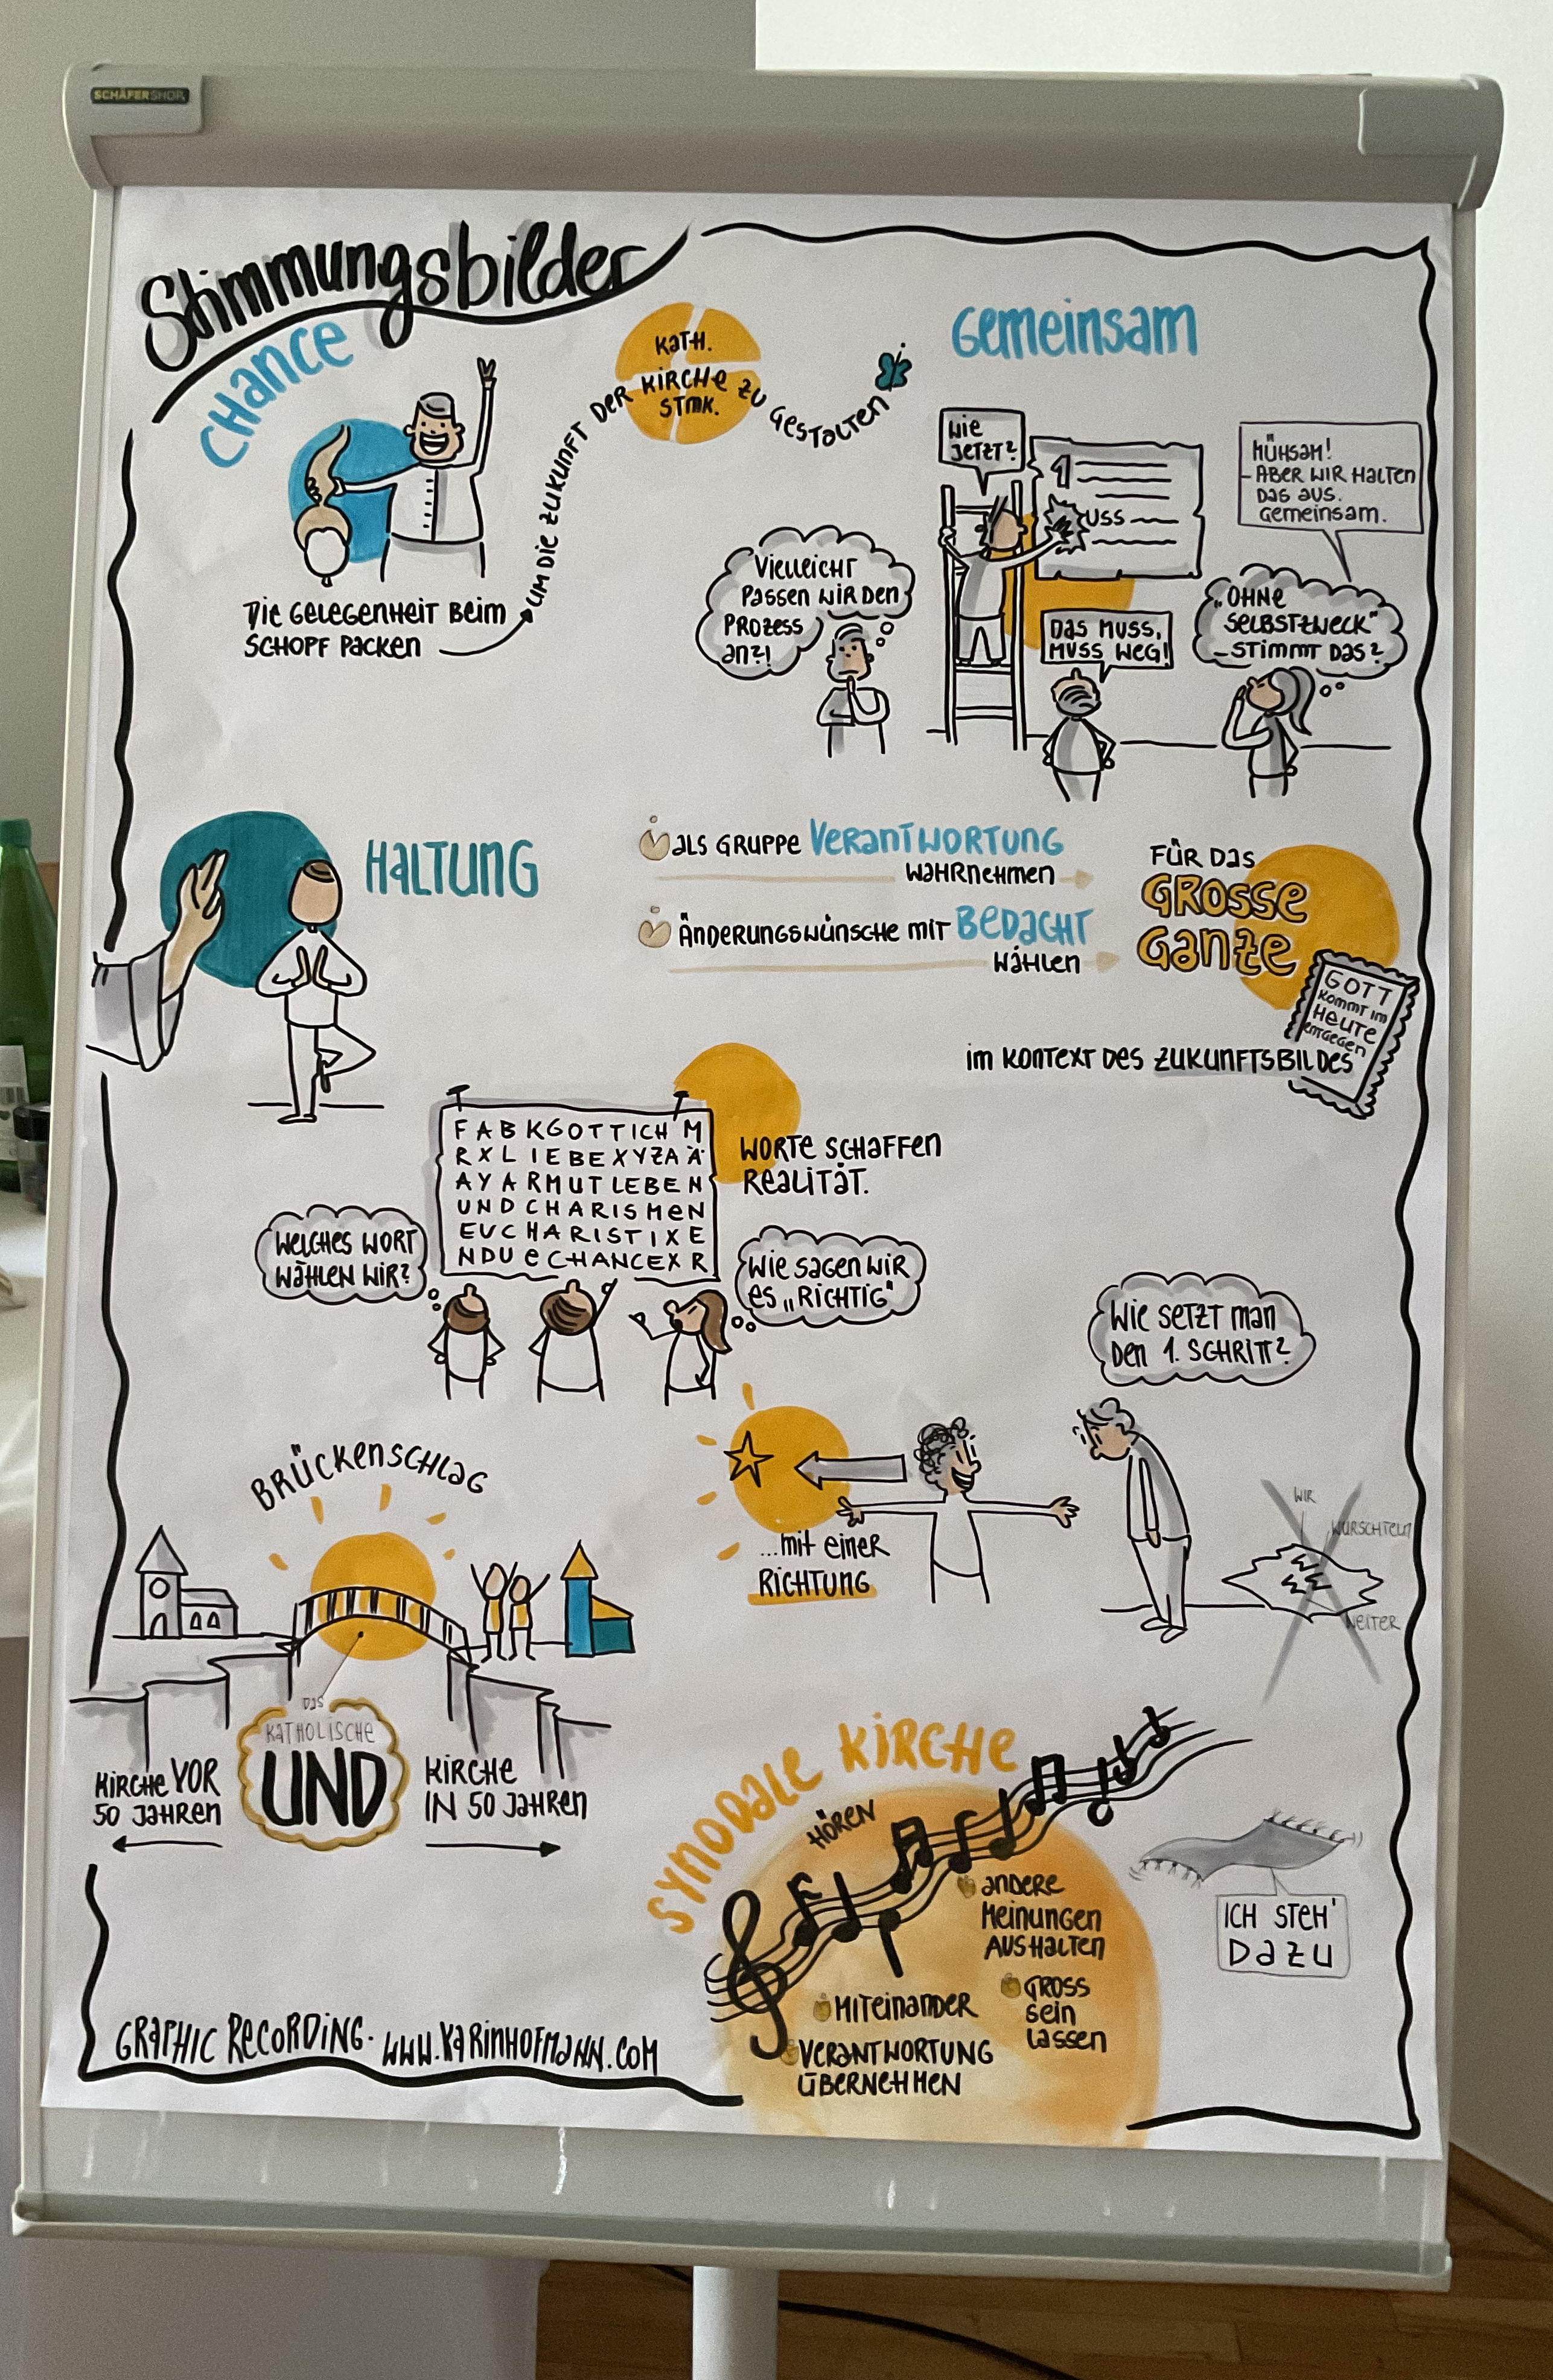 SCHÄFER SHOP
Stimmungsbilder
CHANCE
DIE GELEGENHEIT BEIM
SCHOPF PACKEN
UM DIE ZUKUNFT DER
KATH.
KIRCHE
STMK.
ZU GESTALTEN
GEMEINSAM
WIE
JETZT?
1
USS
MÜHSAM!
- ABER WIR HALTEN
DAS AUS.
GEMEINSAM.
VIELLEICHT
PASSEN WIR DEN
PROZESS
AN?!
DAS MUSS,
MUSS WEG!
„OHNE
SELBSTZWECK"
- STIMMT DAS?
HALTUNG
ALS GRUPPE VERANTWORTUNG
WAHRNEHMEN
ÄNDERUNGSWÜNSCHE MIT BEDACHT
WÄHLEN
FÜR DAS
GROSSE
GANZE
GOTT
KOMMT IM
HEUTE
ENTGEGEN
IM KONTEXT DES ZUKUNFTSBILDES
FABKGOTTICHM
RXLIEBEXYZAÄ
AYARMUTLEBEN
UNDCHARISMEN
EUCHARISTIXE
NDUECHANCEXR
WORTE SCHAFFEN
REALITÄT.
WELCHES WORT
WÄHLEN WIR?
WIE SAGEN WIR
ES „RICHTIG"
WIE SETZT MAN
DEN 1. SCHRITT?
...MIT EINER
RICHTUNG
WIR
WURSCHTELN
WEITER
BRÜCKENSCHLAG
DAS
KATHOLISCHE
UND
KIRCHE VOR
50 JAHREN
KIRCHE
IN 50 JAHREN
SYNODALE KIRCHE
HÖREN
ANDERE
MEINUNGEN
AUSHALTEN
GROSS
SEIN
LASSEN
MITEINANDER
VERANTWORTUNG
ÜBERNEHMEN
ICH STEH'
DAZU
GRAPHIC RECORDING · WWW.KARINHOFMANN.COM